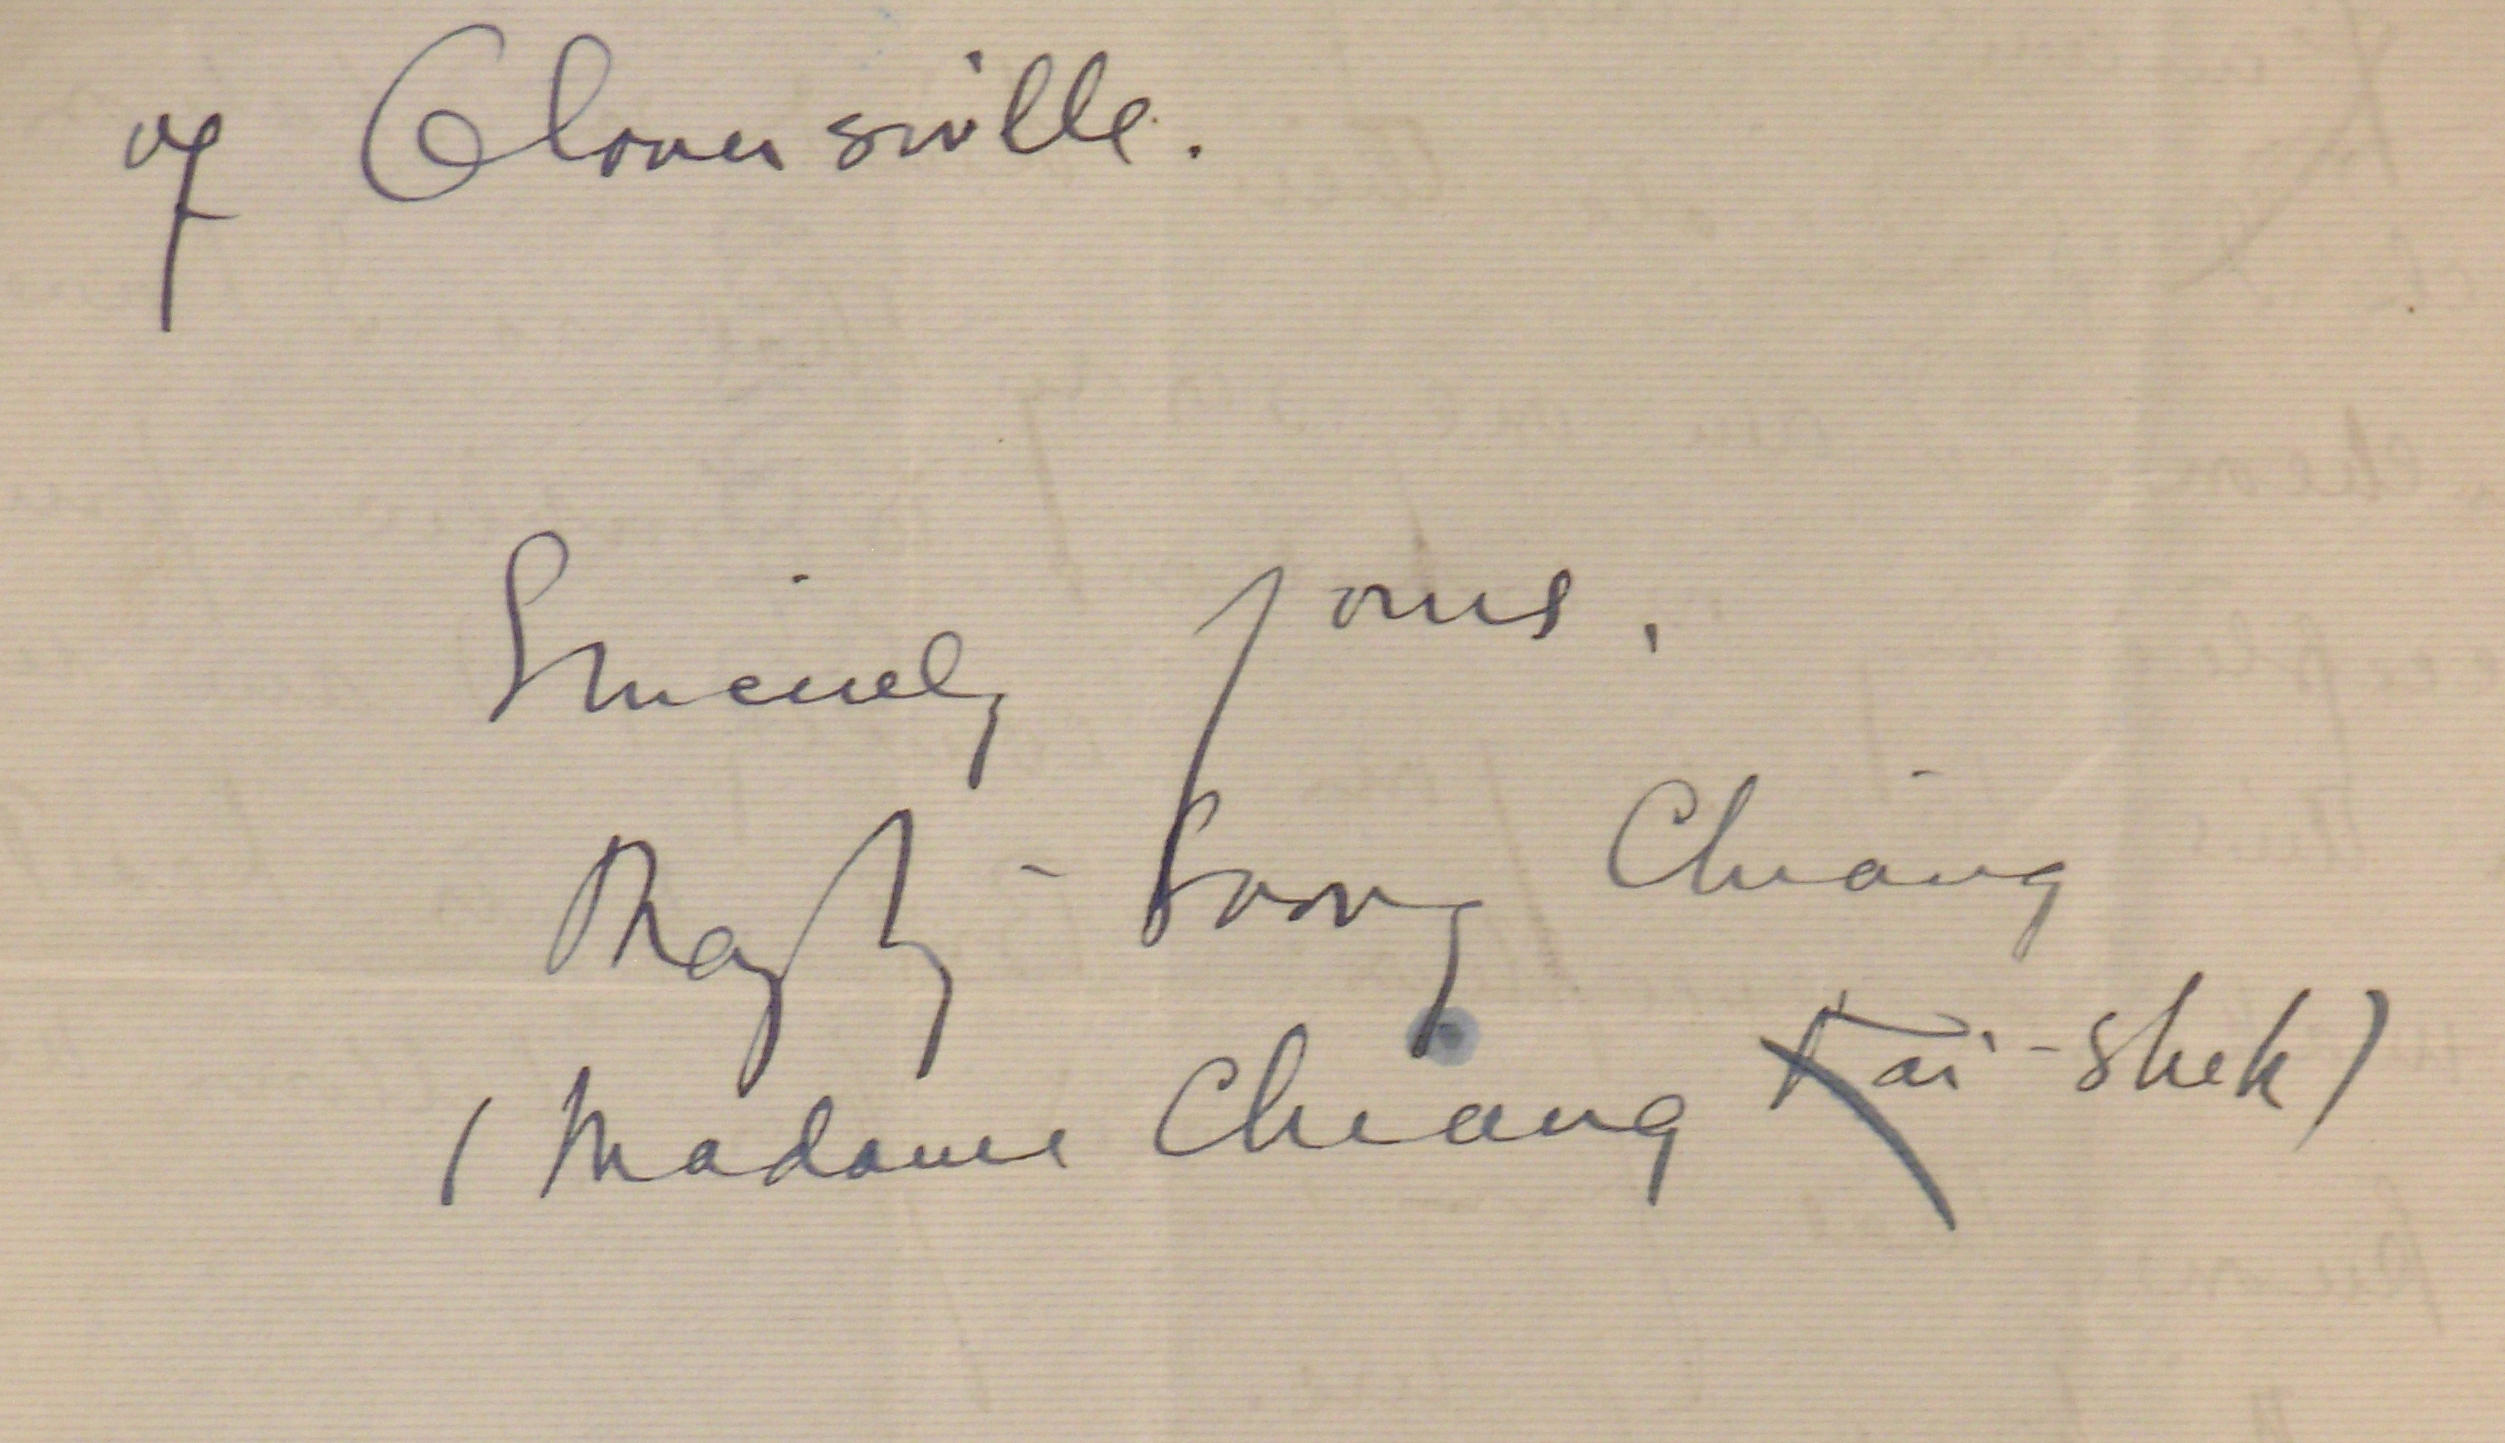 of Gloversville.
Sincerely yours,
Mayling Soong Chiang
(Madame Chiang Kai-shek)